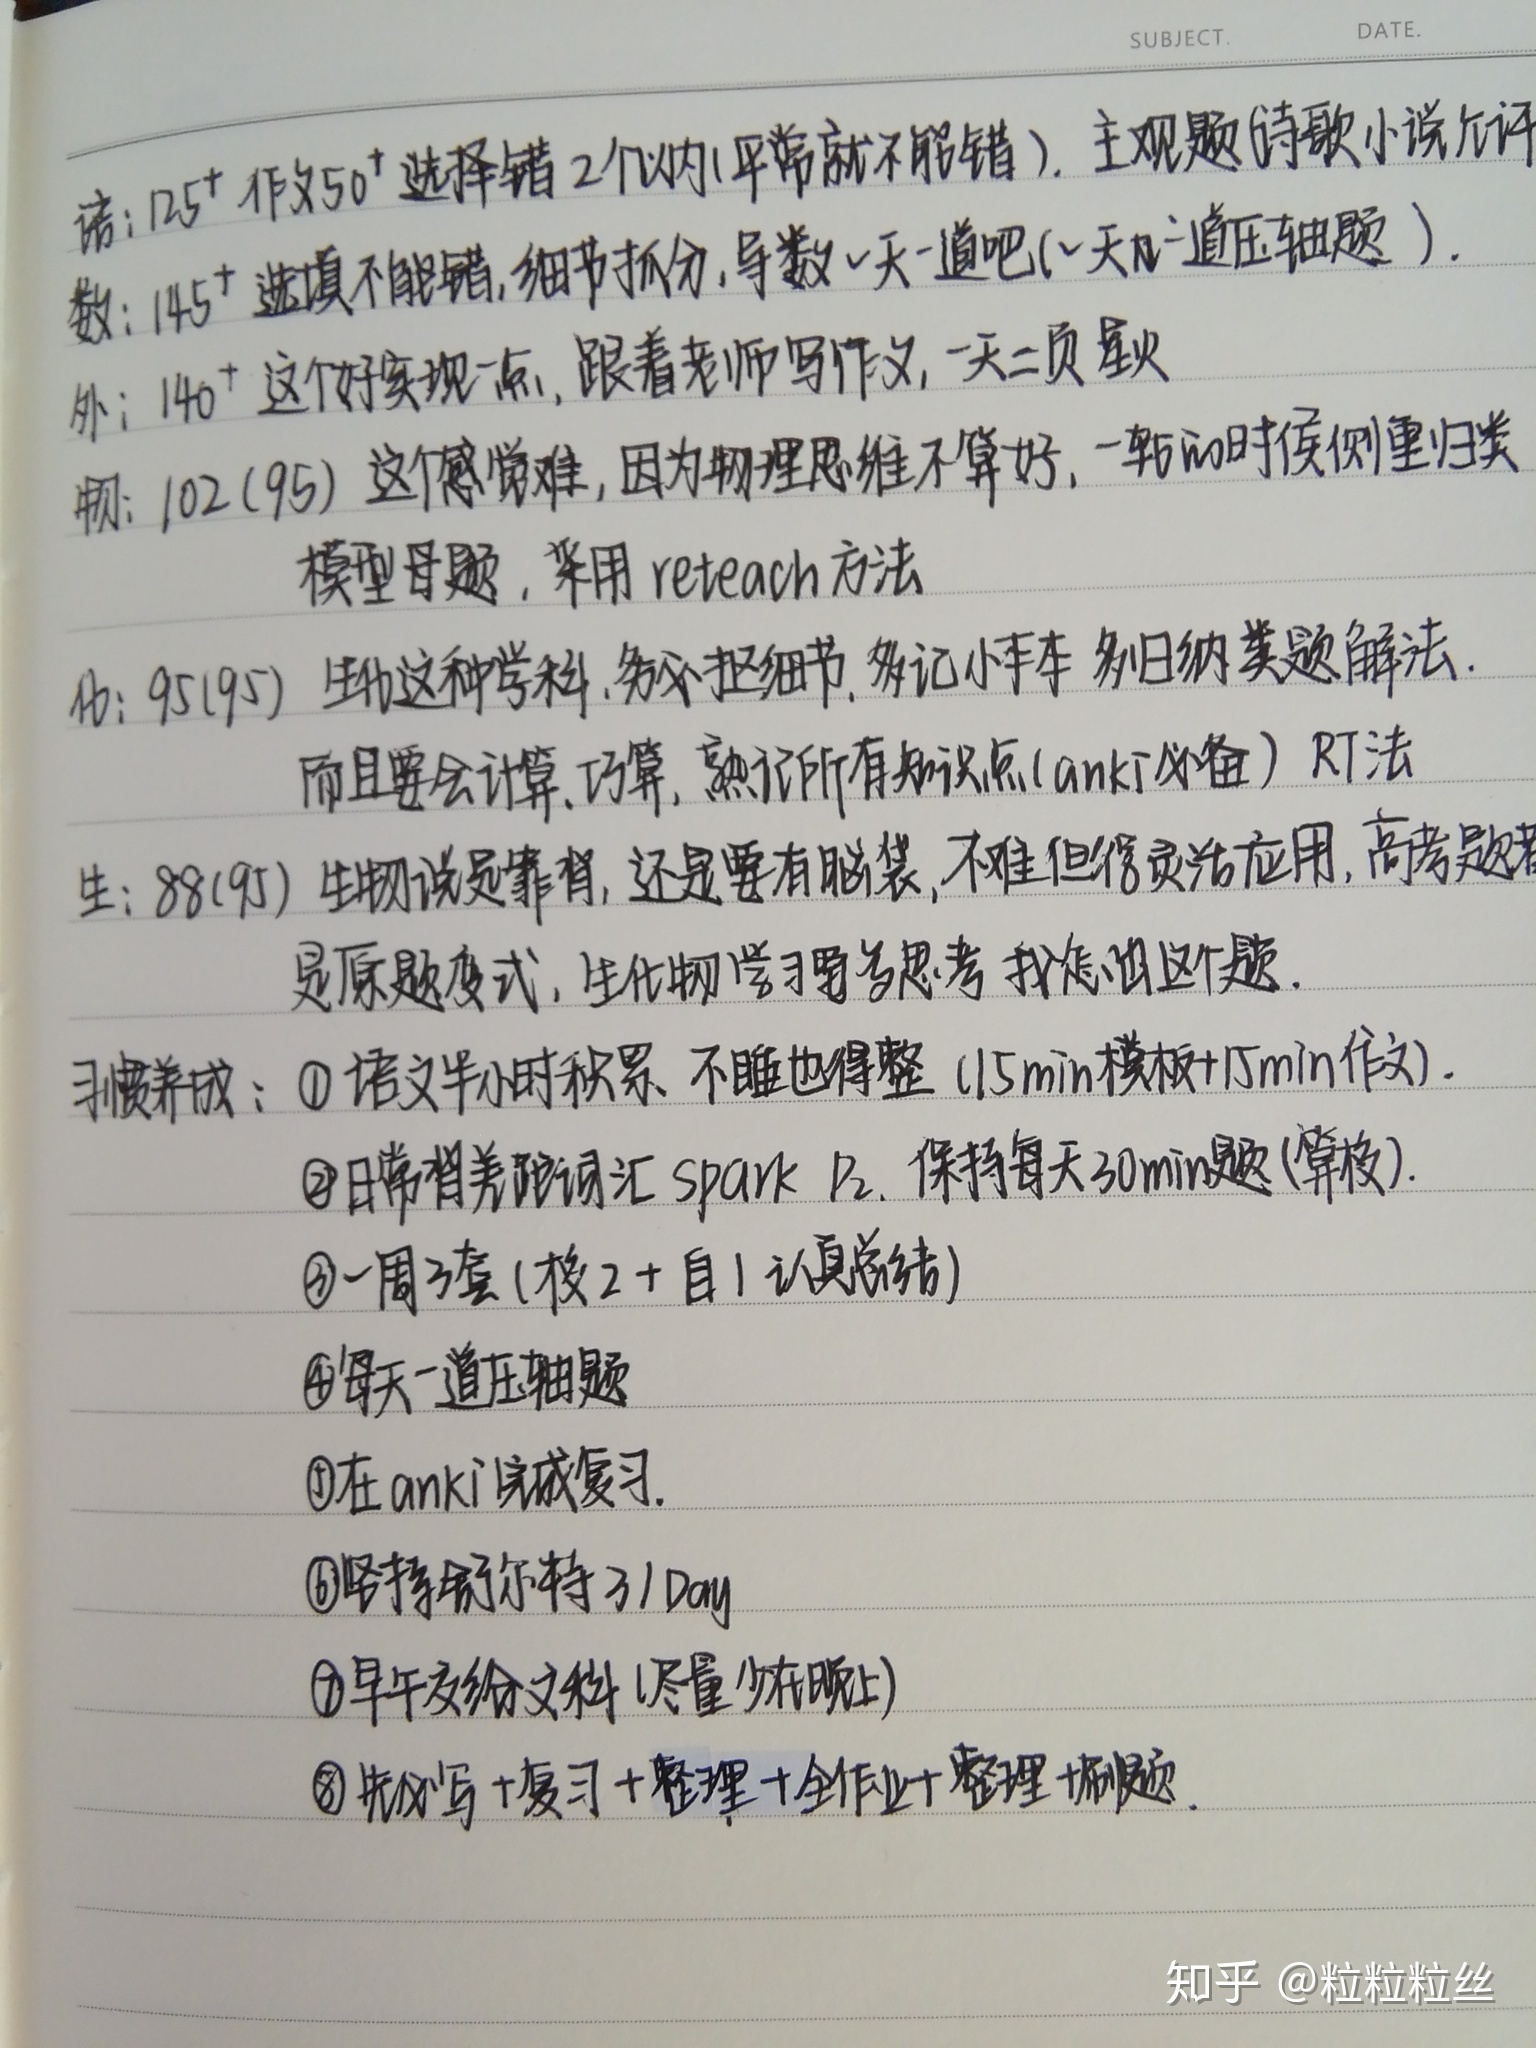 SUBJECT. DATE.
语: 125+ 作文50+ 选择错2个以内(平常就不能错). 主观题(诗歌小说允许
数: 145+ 选填不能错,细节抓分,导数一天一道吧(一天几道压轴题).
外: 140+ 这个好实现一点, 跟着老师写作文, 一天二页星火
物: 102(95) 这个感觉难, 因为物理思维不算好, 一轮的时候侧重归类
模型母题, 采用 reteach 方法
化: 95(95) 生化这种学科, 务必抠细节, 多记小手本 多归纳类题解法.
而且要会计算、巧算, 熟记所有知识点(anki必备) RT法
生: 88(95) 生物说是靠背, 还是要有脑袋, 不难但得灵活应用, 高考题都
是原题变式, 生化物学习要多思考 我怎出这个题.
习惯养成: ① 语文半小时积累、不睡也得整 (15min模板+15min作文).
②日常背美陀词汇 spark P2. 保持每天30min题(算校).
③一周3套(校2+自1 认真总结)
④每天一道压轴题
⑤在anki完成复习.
⑥坚持舒尔特 31Day
⑦早午交给文科 (尽量少在晚上)
⑧先必写+复习+整理+全作业+整理+刷题.
知乎 @粒粒粒丝